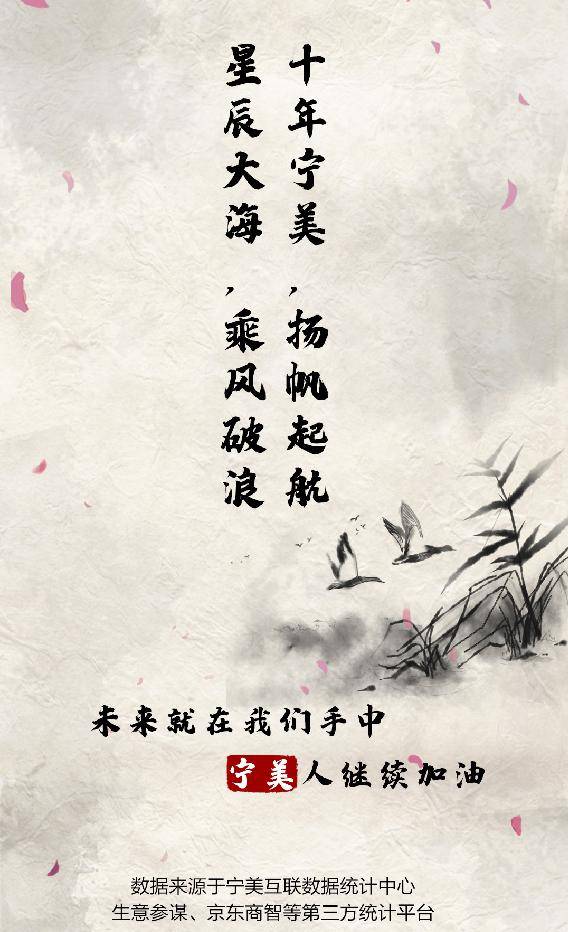 十年宁美，扬帆起航
星辰大海，乘风破浪
未来就在我们手中
宁美人继续加油
数据来源于宁美互联数据统计中心
生意参谋、京东商智等第三方统计平台